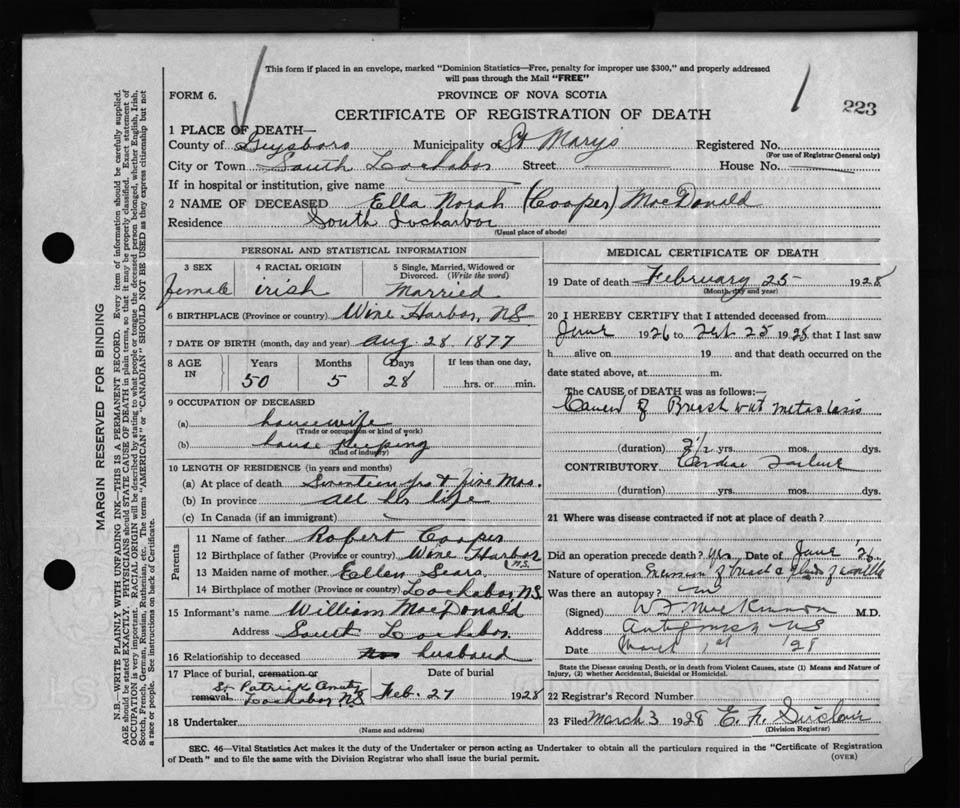 This form if placed in an envelope, marked "Dominion Statistics—Free, penalty for improper use $300," and properly addressed
will pass through the Mail "FREE"
FORM 6.
PROVINCE OF NOVA SCOTIA
223
CERTIFICATE OF REGISTRATION OF DEATH
1 PLACE OF DEATH—
County of Guysboro Municipality of St Marys Registered No.
(For use of Registrar General only)
City or Town South Lochabor Street House No.
If in hospital or institution, give name
2 NAME OF DECEASED Ella Norah (Cooper) MacDonald
Residence South Locharbor
(Usual place of abode)
PERSONAL AND STATISTICAL INFORMATION
3 SEX 4 RACIAL ORIGIN 5 Single, Married, Widowed or Divorced. (Write the word)
female irish Married
6 BIRTHPLACE (Province or country) Wine Harbor, NS
7 DATE OF BIRTH (month, day and year) Aug. 28 1877
8 AGE IN Years Months Days If less than one day,
50 5 28 hrs. or min.
9 OCCUPATION OF DECEASED
(a) housewife
(Trade or occupation or kind of work)
(b) house keeping
(Kind of industry)
10 LENGTH OF RESIDENCE (in years and months)
(a) At place of death Seventeen yrs & five Mos.
(b) In province all her life
(c) In Canada (if an immigrant)
Parents
11 Name of father Robert Cooper
12 Birthplace of father (Province or country) Wine Harbor N.S.
13 Maiden name of mother Ellen Sears
14 Birthplace of mother (Province or country) Lochabor N.S.
15 Informant's name William MacDonald
Address South Lochabor
16 Relationship to deceased husband
17 Place of burial, cremation or removal Date of burial
St Patrick Lochabor NS Feb. 27 1928
18 Undertaker
(Name and address)
MEDICAL CERTIFICATE OF DEATH
19 Date of death February 25 1928
(Month, day and year)
20 I HEREBY CERTIFY that I attended deceased from
June 1926 to Feb. 25 1928 that I last saw
h alive on 19 and that death occurred on the
date stated above, at m.
The CAUSE OF DEATH was as follows:
Cancer of Breast with metastasis
(duration) 2 1/2 yrs. mos. dys.
CONTRIBUTORY Cardiac Failure
(duration) yrs. mos. dys.
21 Where was disease contracted if not at place of death?
Did an operation precede death? Yes Date of June '26
Nature of operation Excision of breast & glands of axilla
Was there an autopsy? no
(Signed) W F MacKinnon M.D.
Address Antigonish N S
Date March 1st '28
State the Disease causing Death, or in death from Violent Causes, state (1) Means and Nature of
Injury, (2) whether Accidental, Suicidal or Homicidal.
22 Registrar's Record Number
23 Filed March 3 1928 E. A. Sinclair
(Division Registrar)
SEC. 46—Vital Statistics Act makes it the duty of the Undertaker or person acting as Undertaker to obtain all the particulars required in the "Certificate of Registration
of Death" and to file the same with the Division Registrar who shall issue the burial permit. (OVER)
MARGIN RESERVED FOR BINDING
N.B.—WRITE PLAINLY WITH UNFADING INK—THIS IS A PERMANENT RECORD. Every item of information should be carefully supplied.
AGE should be stated EXACTLY. PHYSICIANS should STATE CAUSE OF DEATH in plain terms, so that it may be properly classified. Exact statement of
OCCUPATION is very important. RACIAL ORIGIN will be described by stating to what people or tongue the deceased person belonged, whether English, Irish,
Scotch, French, German, Russian, Ruthenian, etc. The terms "AMERICAN" or "CANADIAN" SHOULD NOT BE USED as they express citizenship but not
a race or people. See instructions on back of Certificate.